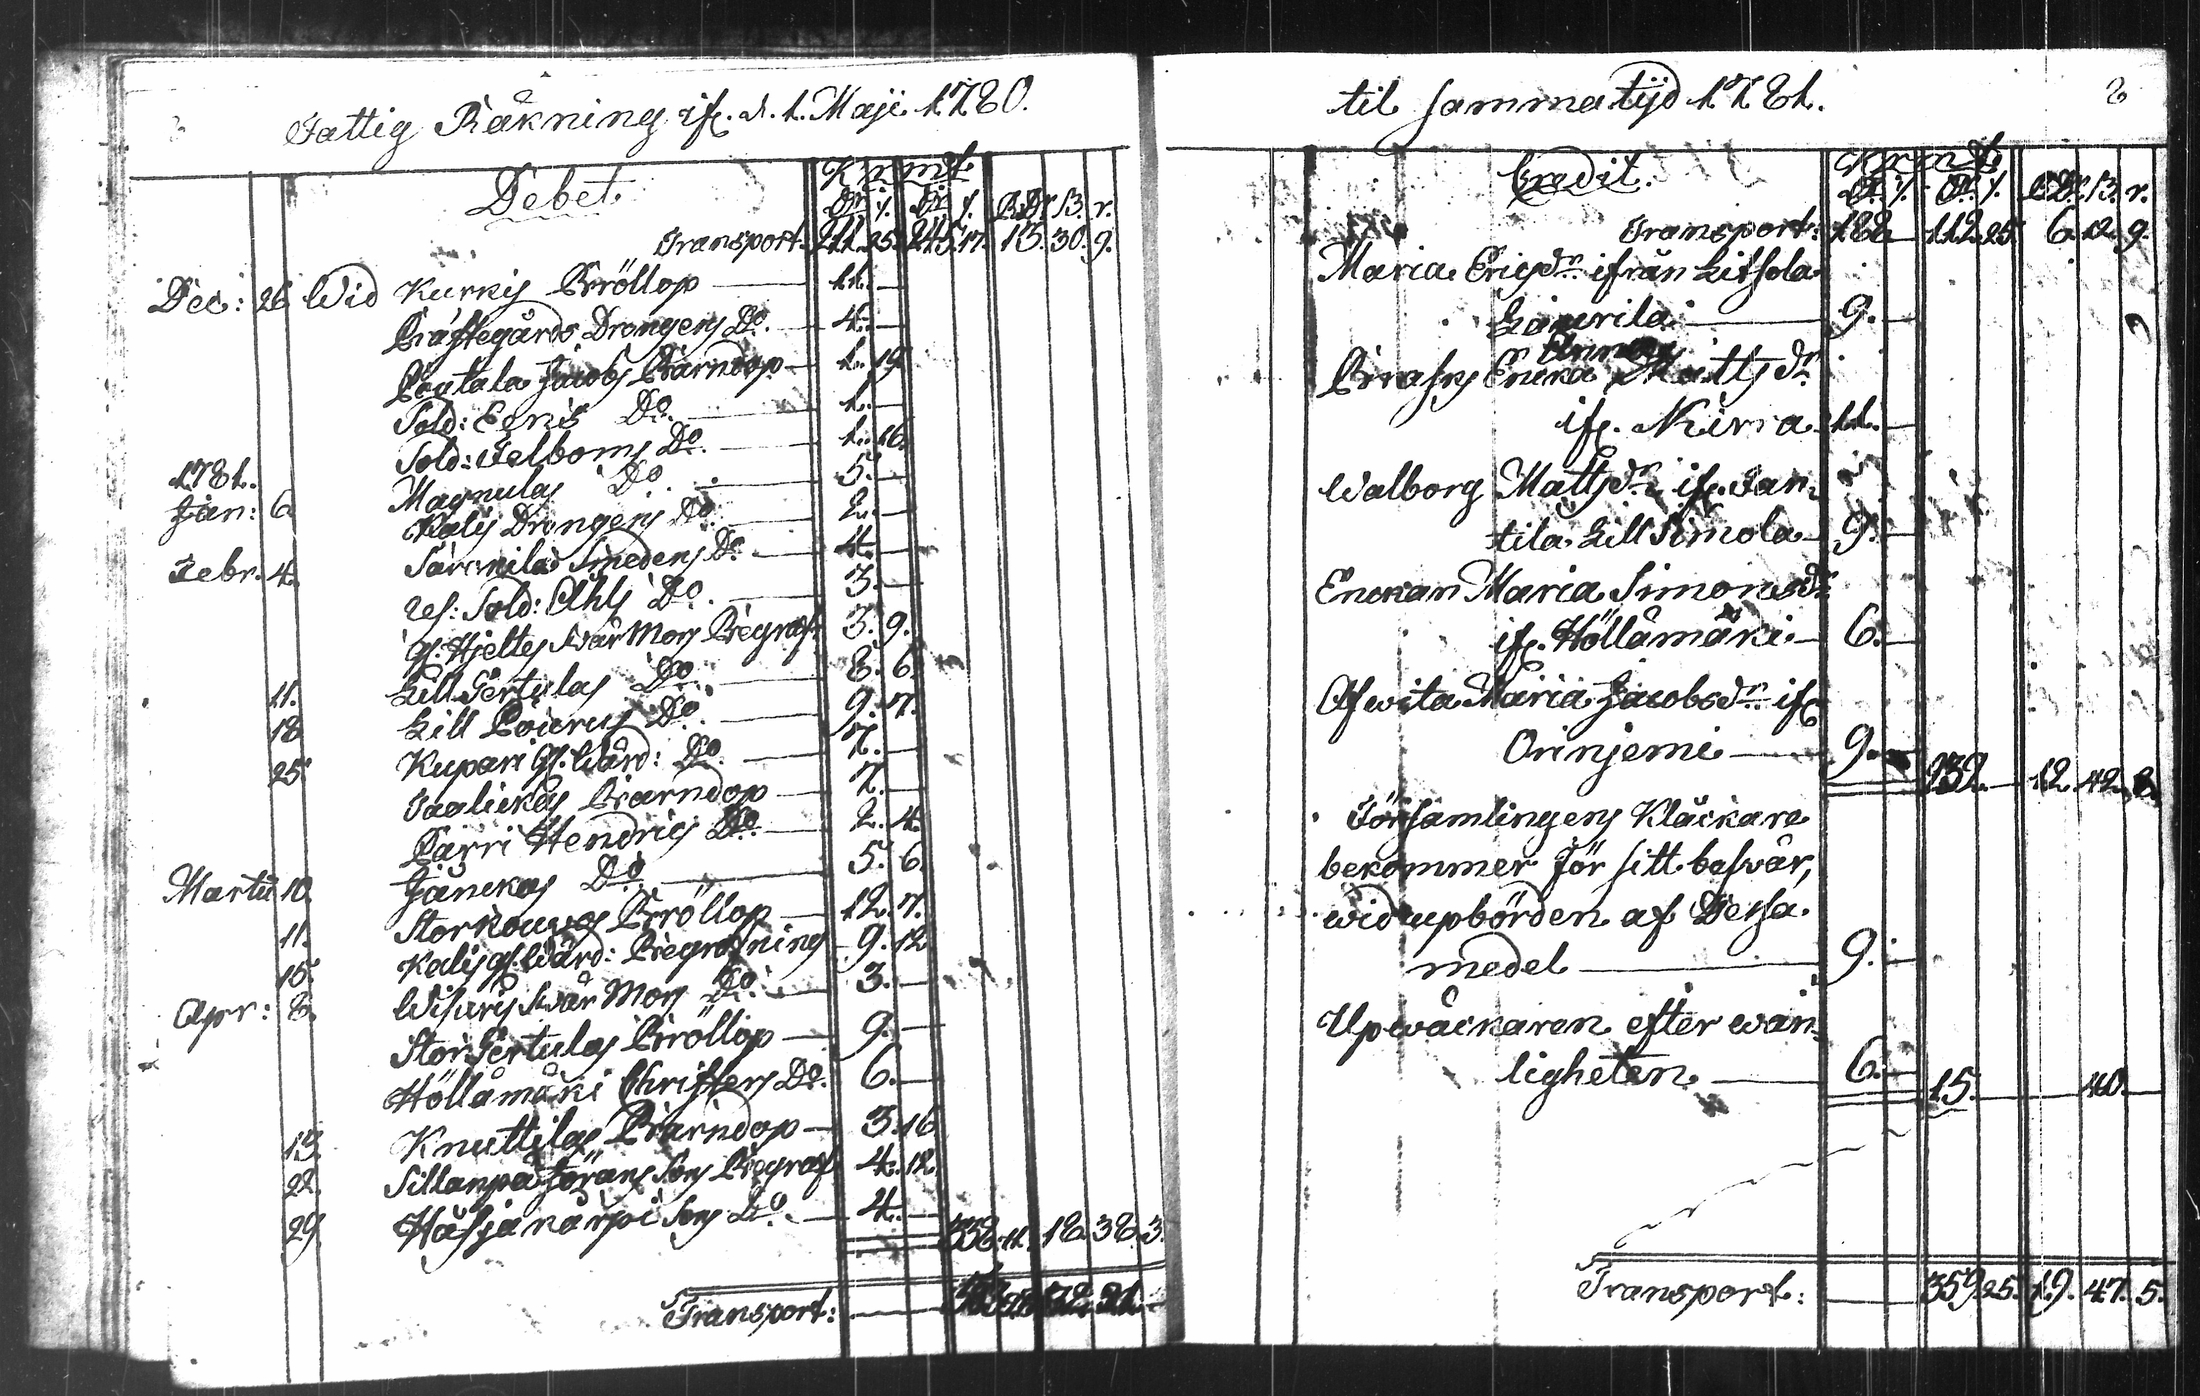 Fattig Räkning ifr. d. 1. Maji 1780.
Debet. Kpmt
Dr. /. Dr. /. R.Dr ß. r.
Transport. 211. 25. 245. 17. 13. 30. 9.
Dec: 26 Wid Kurkis Bröllop — 11. —
Prästegårds Drängens Do. — 4. —
Pentala Jacobs Barndop — 1. 19.
Sold: Do. — 1. —
Sold: Do. — 1. 16.
1781. Magnulas Do. — 5. —
Jan: 6. Kalis Drängens Do. — 2. —
Febr. 4. Smedens Do. — 4. —
ref: Sold: Ahls Do. — 3. —
gl. Hjeltes Swär Mors Begraf. 3. 9.
11. Lill Pertulas Do. — 8. 6.
18. Lill Do. — 9. 7.
25. Kupari gl. Wärd: Do. — 7. —
Barndop — 7. —
Parri Hendrics Do. — 2. 4.
Martii 10. Do. — 5. 6.
11. Storkouvos Bröllop — 12. 7.
15. Kalis gl. Wärd: Begrafning — 9. 12.
Apr: 8. Swär Mors Do. — 3. —
Stor Pertulas Bröllop — 9. —
Höllämäki Christers Do. 6. —
13. Knuttilas Barndop — 3. 16.
22. Sillanpä Görans Sons Begraf 4. 12.
29. Sons Do. — 4. — 338. 11. 18. 38. 3.
Transport: —
til samma tijd 1781.
Credit. Kpmt
Dr. /. Dr. /. R.Dr. ß. r.
Transport: 188. — 112. 25. 6. 12. 9.
Maria Ericsdr. ifrån
— 9. —
Enka Mattsdr
ifr. Kirra. 11. —
Walborg Mattsdr. ifr. Jan-
tila Lill Simola — 9. —
Enckan Maria Simonsdr
ifr. Höllämäki — 6. —
Afwita Maria Jacobsdr. ifr.
Orinjemi — 9. — 232. — 12. 42. 8.
Församlingens Kläckare
bekommer för sitt beswär,
wid upbörden af Dessa
medel — 9. —
Upwäckaren efter wan-
ligheten. — 6. — 15. — 40. —
Transport: — 359. 25. 19. 47. 5.